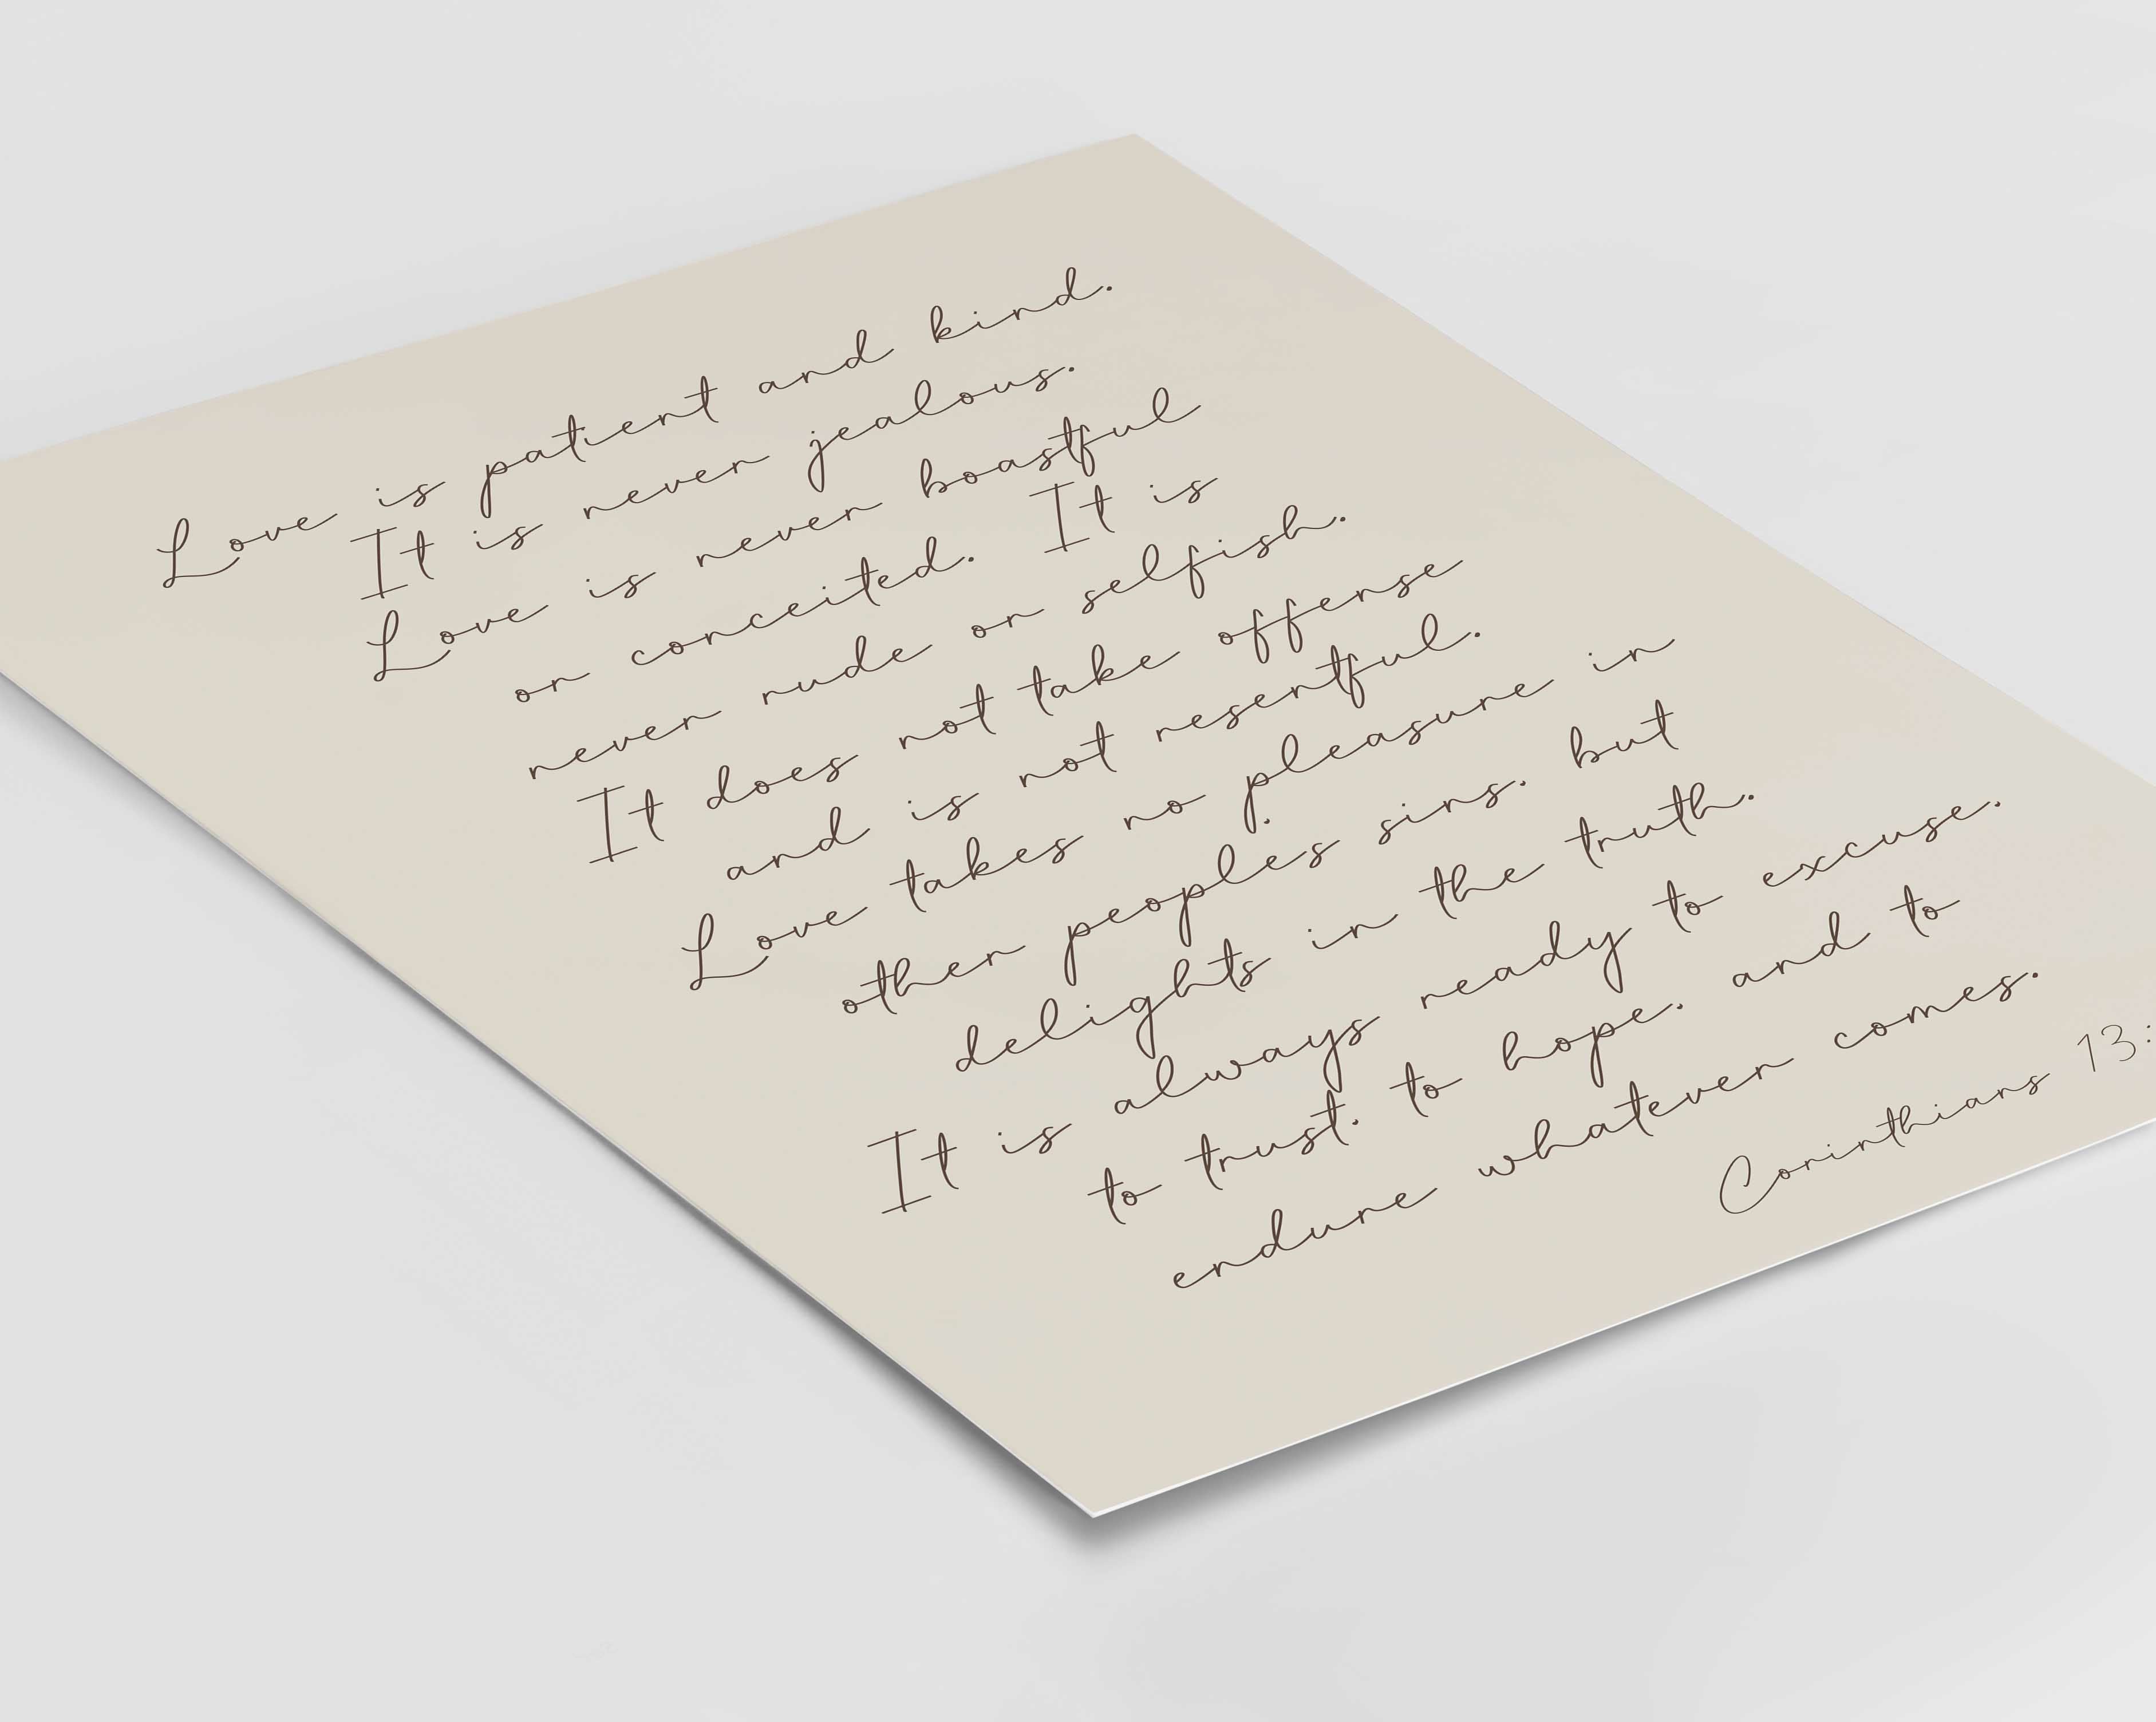 Love is patient and kind.
It is never jealous.
Love is never boastful
or conceited. It is
never rude or selfish.
It does not take offense
and is not resentful.
Love takes no pleasure in
other people's sins. but
delights in the truth.
It is always ready to excuse.
to trust. to hope. and to
endure whatever comes.
Corinthians 13: